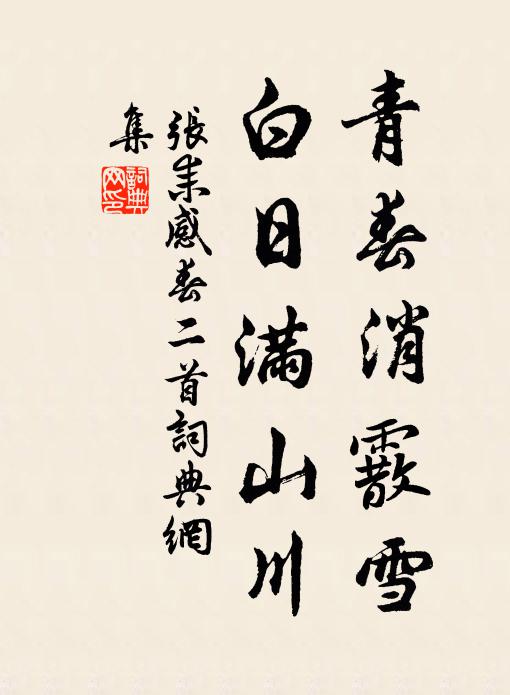 青春消霰雪
白日滿山川
張耒感春二首詞典網
集
詞典網印